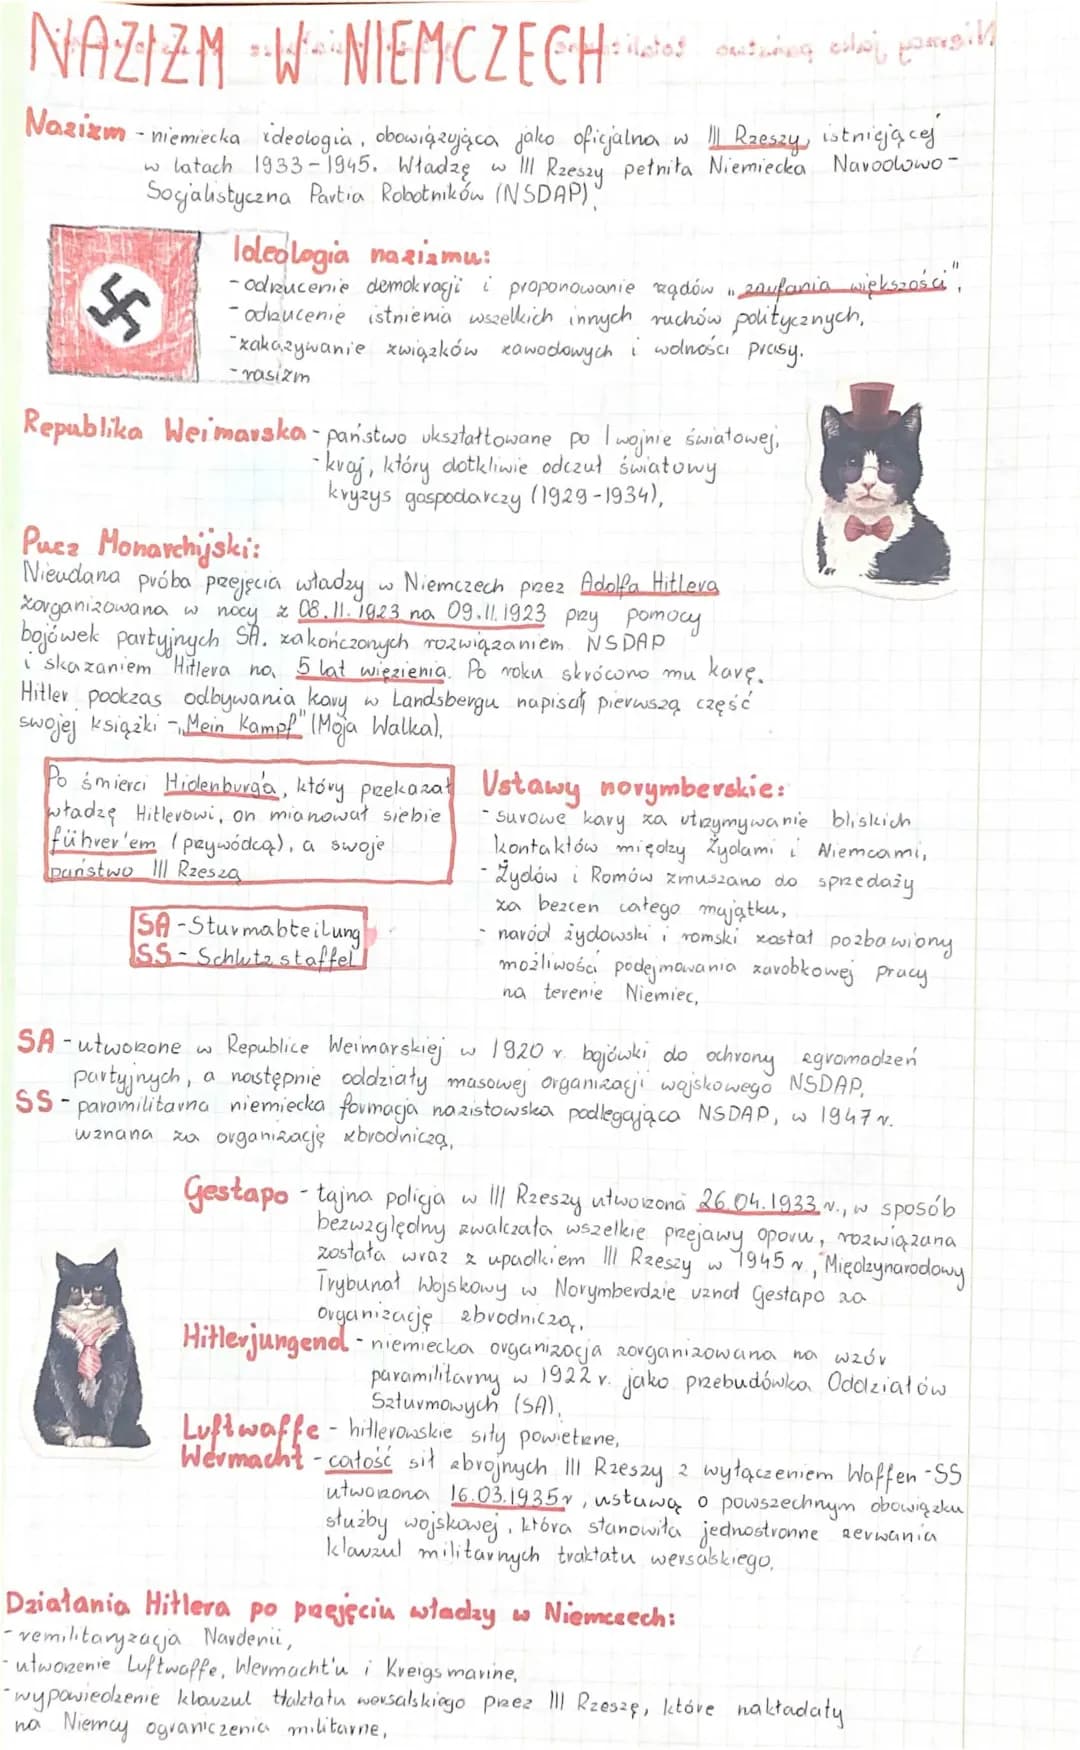 NAZIZM W NIEMCZECH
Nazizm - niemiecka ideologia, obowiązująca jako oficjalna w III Rzeszy, istniejącej
w latach 1933-1945. Władzę w III Rzeszy pełniła Niemiecka Narodowo-
Socjalistyczna Partia Robotników (NSDAP),
Ideologia nazizmu:
- odrzucenie demokracji i proponowanie rządów „zaufania większości",
- odrzucenie istnienia wszelkich innych ruchów politycznych,
- zakazywanie związków zawodowych i wolności prasy.
- rasizm
Republika Weimarska - państwo ukształtowane po I wojnie światowej,
- kraj, który dotkliwie odczuł światowy
kryzys gospodarczy (1929-1934),
Pucz Monarchijski:
Nieudana próba przejęcia władzy w Niemczech przez Adolfa Hitlera
zorganizowana w nocy z 08.11.1923 na 09.11.1923 przy pomocy
bojówek partyjnych SA. zakończonych rozwiązaniem NSDAP
i skazaniem Hitlera na 5 lat więzienia. Po roku skrócono mu karę.
Hitler podczas odbywania kary w Landsbergu napisał pierwszą część
swojej książki - „Mein Kampf" (Moja Walka),
Po śmierci Hidenburga, który przekazał
władzę Hitlerowi, on mianował siebie
führer'em (przywódcą), a swoje
państwo III Rzeszą
SA - Sturmabteilung
SS - Schlutz staffel
Ustawy norymberskie:
- surowe kary za utrzymywanie bliskich
kontaktów między Żydami i Niemcami,
- Żydów i Romów zmuszano do sprzedaży
za bezcen całego majątku,
- naród żydowski i romski został pozbawiony
możliwości podejmowania zarobkowej pracy
na terenie Niemiec,
SA - utworzone w Republice Weimarskiej w 1920 r. bojówki do ochrony zgromadzeń
partyjnych, a następnie oddziały masowej organizacji wojskowego NSDAP,
SS - paramilitarna niemiecka formacja nazistowska podlegająca NSDAP, w 1947 r.
uznana za organizację zbrodniczą,
Gestapo - tajna policja w III Rzeszy utworzona 26.04.1933 r., w sposób
bezwzględny zwalczała wszelkie przejawy oporu, rozwiązana
została wraz z upadkiem III Rzeszy w 1945 r., Międzynarodowy
Trybunał Wojskowy w Norymberdzie uznał Gestapo za
organizację zbrodniczą,
Hitlerjungend - niemiecka organizacja zorganizowana na wzór
paramilitarny w 1922 r. jako przebudówka Oddziałów
Szturmowych (SA),
Luftwaffe - hitlerowskie siły powietrzne,
Wermacht - całość sił zbrojnych III Rzeszy z wyłączeniem Waffen-SS
utworzona 16.03.1935r, ustawą o powszechnym obowiązku
służby wojskowej, która stanowiła jednostronne zerwania
klauzul militarnych traktatu wersalskiego,
Działania Hitlera po przejęciu władzy w Niemczech:
- remilitaryzacja Nardenii,
- utworzenie Luftwaffe, Wermacht'u i Kreigsmarine,
- wypowiedzenie klauzul traktatu wersalskiego przez III Rzeszę, które nakładały
na Niemcy ograniczenia militarne,